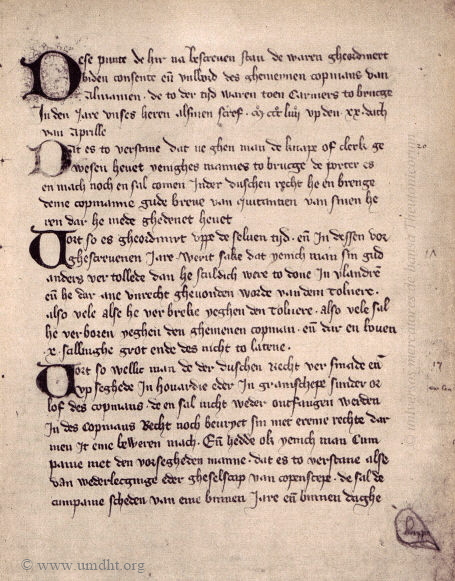 Dese punte de hir na bescreuen stan de waren gheordinert
biden consente eñ vulword des ghemeynen copmans van
Almanien · de to der tijd waren toen Carmers to brucge
In den Jare vnses heren alsmen scref · Mͦ ccͦ liiijͦ vp den · xx · dach
van Aprille
Dat es to verstane dat ne ghen man de knape of clerk ge
wesen heuet yenighes mannes to brucge de porter es
en mach noch en sal comen Inder duschen recht he en brenge
deme copmanne gude breue van quitantien van sinen he
ren dar he mede ghedenet heuet
Vort so es gheordinirt vppe de seluen tijd · eñ In dessen vor
ghescreuenen Jare · Werit sake dat yemich man sin gud
anders ver tollede dan he sculdich were to done In vlandrē
eñ he dar ane vnrecht gheuonden worde van dem tolnere ·
also vele alse he ver breke yeghen den tolnere · also vele sal
he verboren yeghen den ghemenen copman · eñ dar en bouen
· x · scillinghe grot ende des nicht to latene ·
Vort so welke man de der duschen Recht ver smade eñ
vp seghede In houardie eder In gramschepe sunder or
lof des copmans · de en sal nicht weder ontfangen werden
In des copmans Recht noch bevryet sin met ereme rechte dar
men it eme beweren mach · Eñ hedde ok yenich man Cum
panie met den vorseghden manne · dat es to verstane alse
van wederlecginge eder gheselscap van copenscepe · de sal de
cumpanie scheden van eme binnen Jare eñ binnen daghe
© www.umdht.org